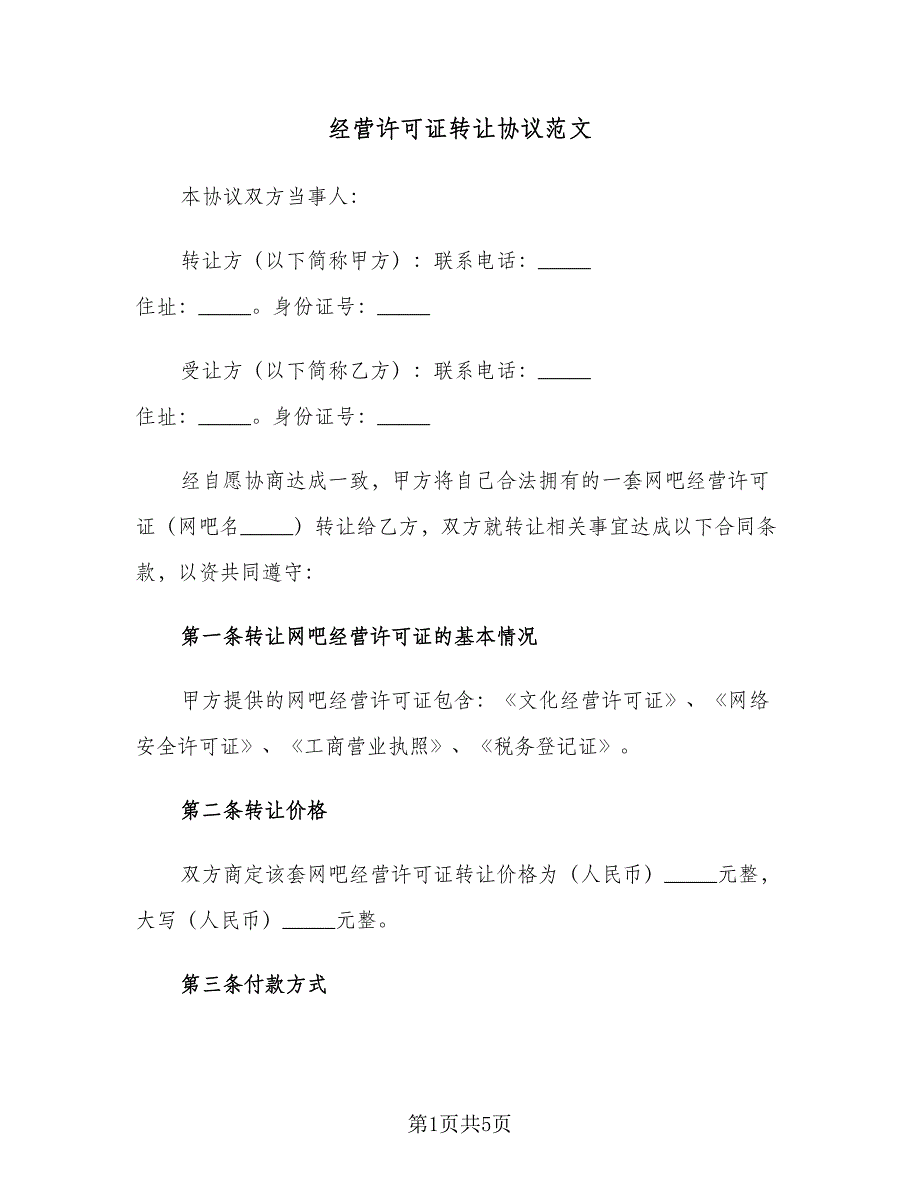 经营许可证转让协议范文
本协议双方当事人：
转让方（以下简称甲方）：联系电话：_____
住址：_____。身份证号：_____
受让方（以下简称乙方）：联系电话：_____
住址：_____。身份证号：_____
经自愿协商达成一致，甲方将自己合法拥有的一套网吧经营许可
证（网吧名_____）转让给乙方，双方就转让相关事宜达成以下合同条
款，以资共同遵守：
第一条转让网吧经营许可证的基本情况
甲方提供的网吧经营许可证包含：《文化经营许可证》、《网络
安全许可证》、《工商营业执照》、《税务登记证》。
第二条转让价格
双方商定该套网吧经营许可证转让价格为（人民币）_____元整，
大写（人民币）_____元整。
第三条付款方式
第1页共5页